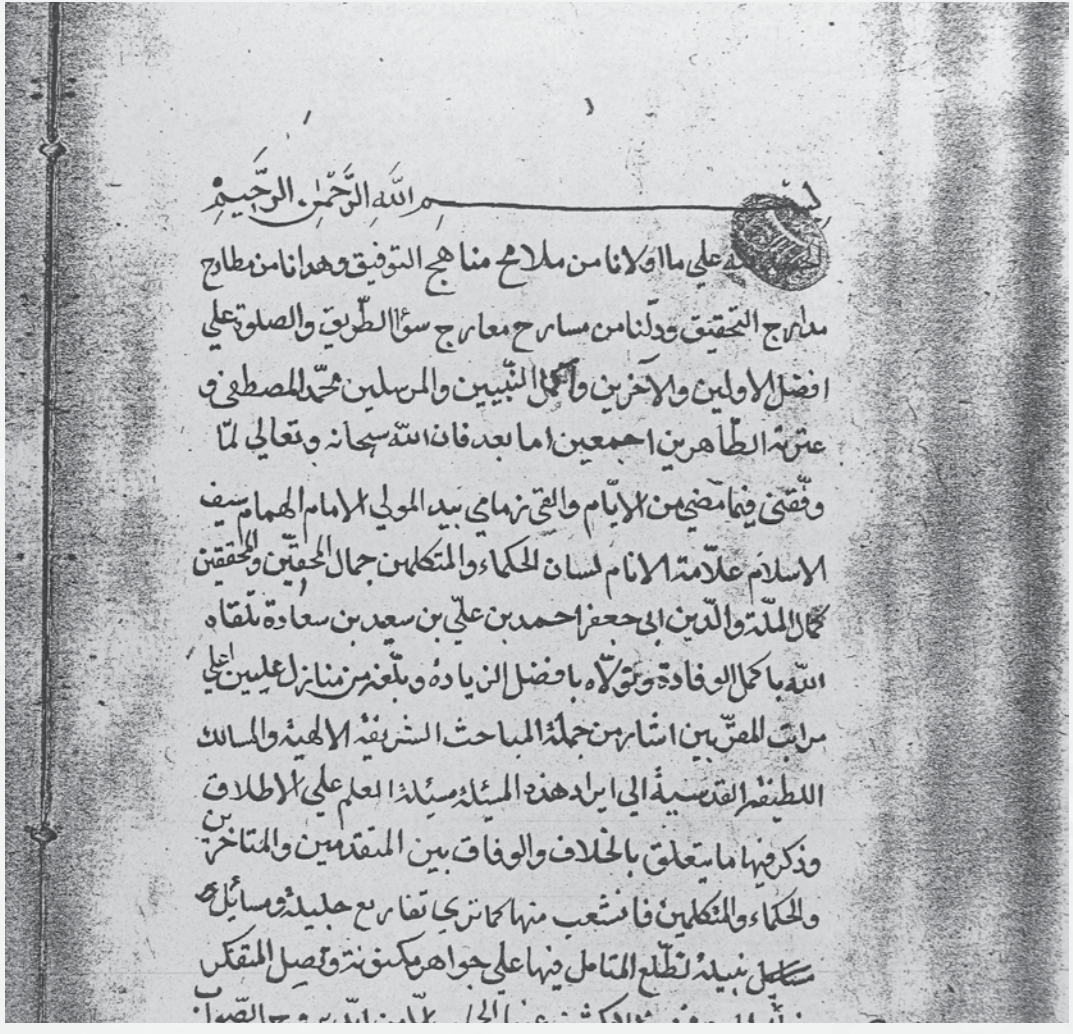 بسم الله الرَّحْمٰن الرَّحِيمْ
علي ما اولانا من ملامح مناهج التوفيق وهدانا من مطارح
مدارج التحقيق ودلّنا من مسارح معارج سؤا الطّريق والصلوة علي
افضل الاولين والآخرين وأكمل النّبيين والمرسلين محمّد المصطفى و
عترته الطّاهرين اجمعين اما بعد فان الله سبحانه وتعالي لمّا
وفّقني فيما مضي من الايّام والقى زمامي بيد المولي الامام الهمام سيف
الاسلام علاّمة الانام لسان الحكماء والمتكلمين جمال المحقّين والمحققين
كمال الملّة والدّين ابى جعفر احمد بن علّي بن سعيد بن سعادة تلقاه
الله باكمل الوفادة وتولّاه بافضل الزيادة وبلّغه من منازل عليين اعلي
مراتب المقرّبين اشار من جملة المباحث الشريفة الالهية والمسالك
اللطيفة القدسيةً الي ايراد هذه المسئلة مسئلة العلم علي الاطلاق
وذكر فيها ما يتعلق بالخلاف والوفاق بين المتقدمين والمتاخرين
والحكماء والمتكلمين فانشعب منها كما تري تفاريع جليلة ومسائل
نبيلة تطّلع المتامل فيها علي جواهر مكنونة وتصل المتفكر